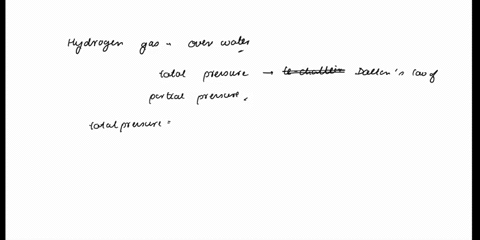 Hydrogen gas - over water
total pressure → Dalton's law of
partial pressure.
total pressure =